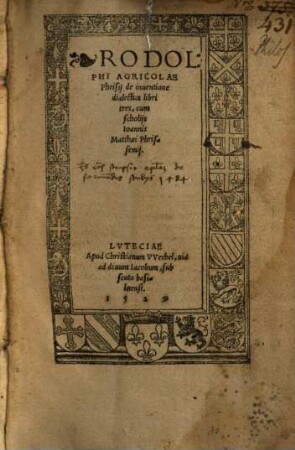 431
RODOL
PHI AGRICOLAE
Phrisij de inuentione
dialectica libri
tres, cum
scholijs
Ioannis
Matthæi Phris=
semij.
LVTECIAE
Apud Christianum VVechel, uico
ad diuum Iacobum, sub
scuto basi=
leiensi.
1529